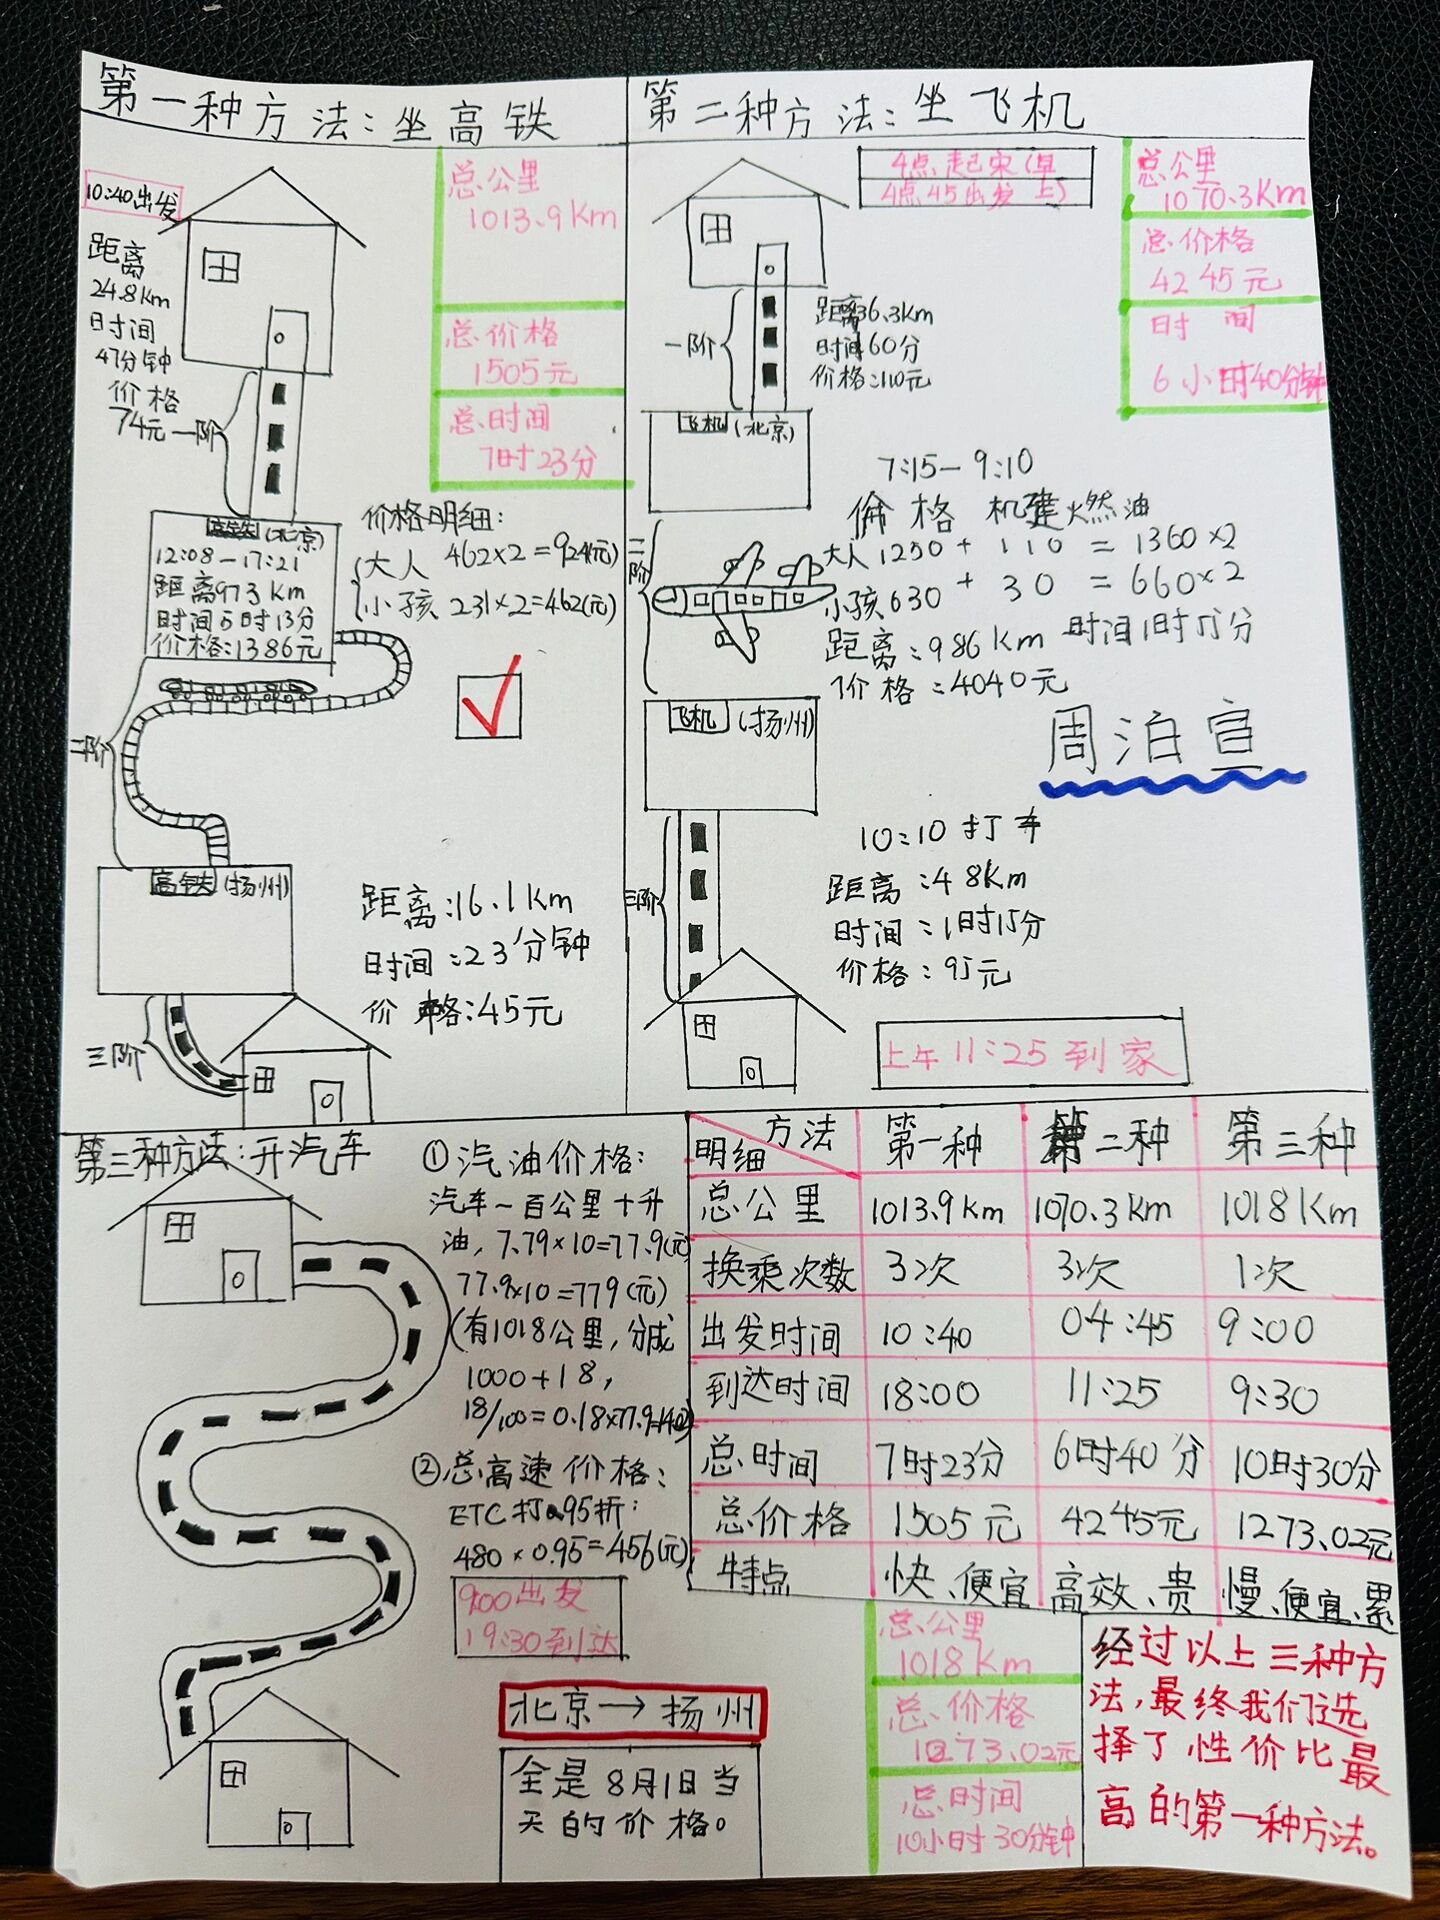 第一种方法:坐高铁
10:40出发
距离
24.8Km
时间
47分钟
价格
74元
一阶
总公里
1013.9Km
总价格
1505元
总时间
7时23分
高铁(北京)
12:08-17:21
距离973Km
时间5时13分
价格:1386元
价格明细:
大人 462×2=924(元)
小孩 231×2=462(元)
二阶
高铁(扬州)
距离:16.1Km
时间:23分钟
价格:45元
三阶
第二种方法:坐飞机
4点起床(早
4点45出发 上)
总公里
1070.3Km
总价格
4245元
时间
6小时40分钟
一阶
距离36.3Km
时间60分
价格:110元
飞机(北京)
7:15-9:10
价格 机建燃油
大人1250+110=1360×2
小孩630+30=660×2
距离:986Km 时间1时55分
价格:4040元
二阶
飞机(扬州)
周泊宣
10:10打车
距离:48Km
时间:1时15分
价格:95元
三阶
上午11:25到家
第三种方法:开汽车
①汽油价格:
汽车一百公里十升
油,7.79×10=77.9(元)
77.9×10=779(元)
(有1018公里,分成
1000+18,
18/100=0.18×77.9=14.02)
②总高速价格:
ETC打0.95折:
480×0.95=456(元)
9:00出发
19:30到达
北京→扬州
全是8月1日当
天的价格。
方法 第一种 第二种 第三种
明细
总公里 1013.9Km 1070.3Km 1018Km
换乘次数 3次 3次 1次
出发时间 10:40 04:45 9:00
到达时间 18:00 11:25 9:30
总时间 7时23分 6时40分 10时30分
总价格 1505元 4245元 1273.02元
特点 快、便宜 高效、贵 慢、便宜、累
总公里
1018Km
总价格
1273.02元
总时间
10小时30分钟
经过以上三种方
法,最终我们选
择了性价比最
高的第一种方法。